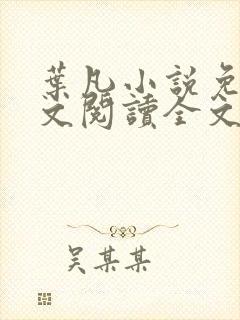 葉凡小說免
文閱讀全文
吴某某